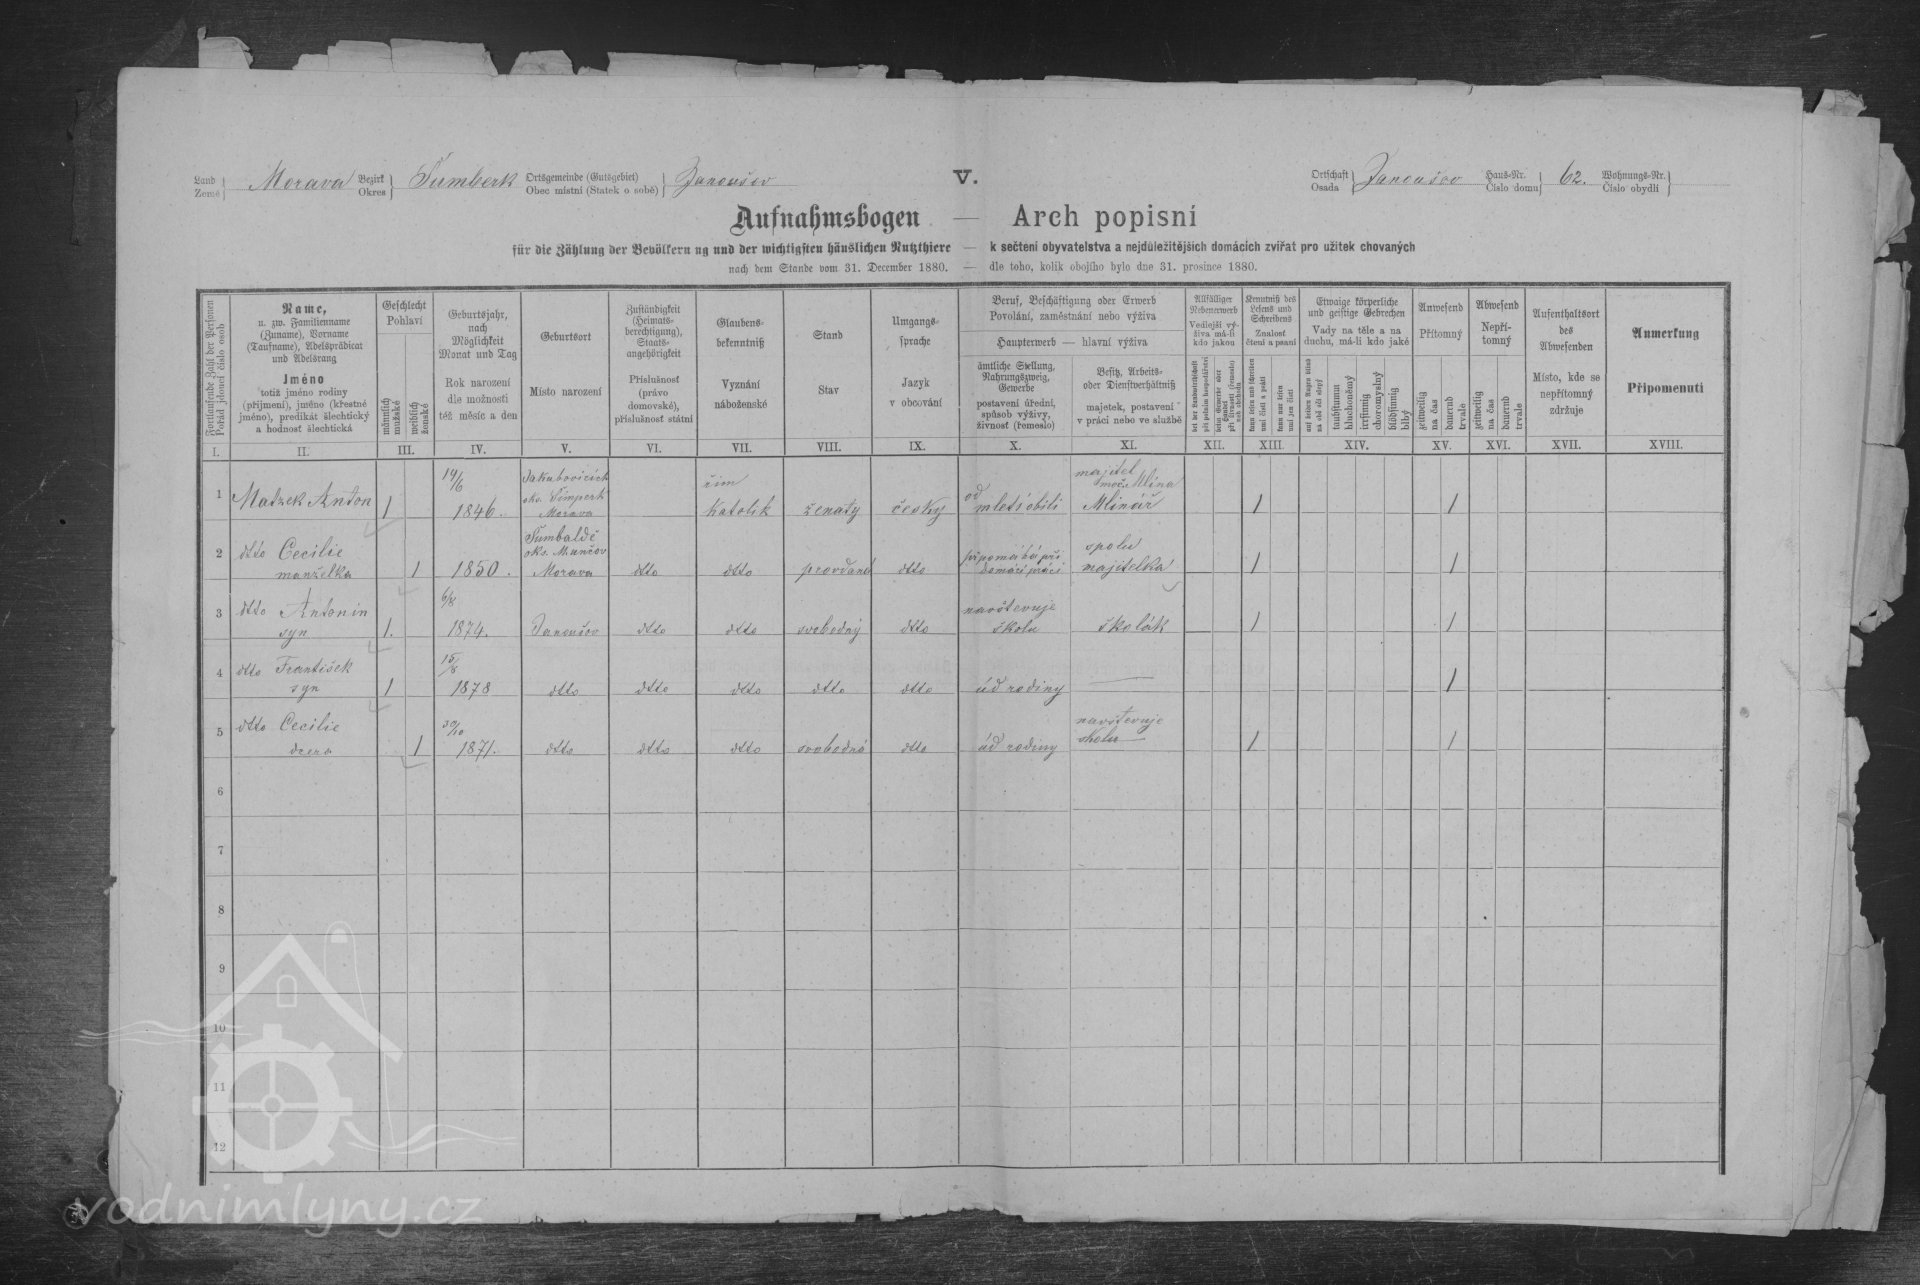 Land
Země
Morava
Bezirk
Okres
Šumberk
Ortsgemeinde (Gutsgebiet)
Obec místní (Statek o sobě)
Janoušov
V.
Ortschaft
Osada
Janoušov
Haus-Nr.
Číslo domu
62.
Wohnungs-Nr.
Číslo obydlí
Aufnahmsbogen — Arch popisní
für die Zählung der Bevölkern ng und der wichtigsten häuslichen Nutzthiere — k sečtení obyvatelstva a nejdůležitějších domácích zvířat pro užitek chovaných
nach dem Stande vom 31. December 1880. — dle toho, kolik obojího bylo dne 31. prosince 1880.
Fortlaufende Zahl der Personen
Pořád jdoucí číslo osob
Name,
u. zw. Familienname
(Zuname), Vorname
(Taufname), Adelsprädicat
und Adelsrang
Jméno
totiž jméno rodiny
(příjmení), jméno (křestné
jméno), predikát šlechtický
a hodnost šlechtická
Geschlecht
Pohlaví
männlich
mužské
weiblich
ženské
Geburtsjahr,
nach
Möglichkeit
Monat und Tag
Rok narození
dle možnosti
též měsíc a den
Geburtsort
Místo narození
Zuständigkeit
(Heimats-
berechtigung),
Staats-
angehörigkeit
Příslušnosť
(právo
domovské),
příslušnosť státní
Glaubens-
bekenntniß
Vyznání
náboženské
Stand
Stav
Umgangs-
sprache
Jazyk
v obcování
Beruf, Beschäftigung oder Erwerb
Povolání, zaměstnání nebo výživa
Haupterwerb — hlavní výživa
ämtliche Stellung,
Nahrungszweig,
Gewerbe
postavení úřední,
spůsob výživy,
živnosť (řemeslo)
Besitz, Arbeits-
oder Dienstverhältniß
majetek, postavení
v práci nebo ve službě
Allfälliger
Nebenerwerb
Vedlejší vý-
živa má-li
kdo jakou
Kenntniß des
Lesens und
Schreibens
Znalosť
čtení a psaní
Etwaige körperliche
und geistige Gebrechen
Vady na těle a na
duchu, má-li kdo jaké
taubstumm
hluchoněmý
irrsinnig
choromyslný
blödsinnig
blbý
Anwesend
Přítomný
zeitweilig
na čas
dauernd
trvale
Abwesend
Nepří-
tomný
zeitweilig
na čas
dauernd
trvale
Aufenthaltsort
des
Abwesenden
Místo, kde se
nepřítomný
zdržuje
Anmerkung
Připomenutí
I. II. III. IV. V. VI. VII. VIII. IX. X. XI. XII. XIII. XIV. XV. XVI. XVII. XVIII.
1 Matzek Anton 1 14/6 1846. Jakubovicích okr. Šimperk Morava řím katolík ženatý český od mletí obilí majitel Mlína Mlinář 1 1
2 dtto Cecilie manželka 1 1850. okr. Morava dtto dtto provdaná dtto domácí práci spolu majitelka 1 1
3 dtto Antonin syn 1. 6/8 1874. Janoušov dtto dtto svobodný dtto navštevuje školu školák 1 1
4 dtto František syn 1 15/8 1878 dtto dtto dtto dtto dtto úd rodiny — 1
5 dtto Cecilie dcera 1 30/10 1871. dtto dtto dtto svobodná dtto úd rodiny navštevuje školu 1 1
6
7
8
9
10
11
12
vodnimlyny.cz